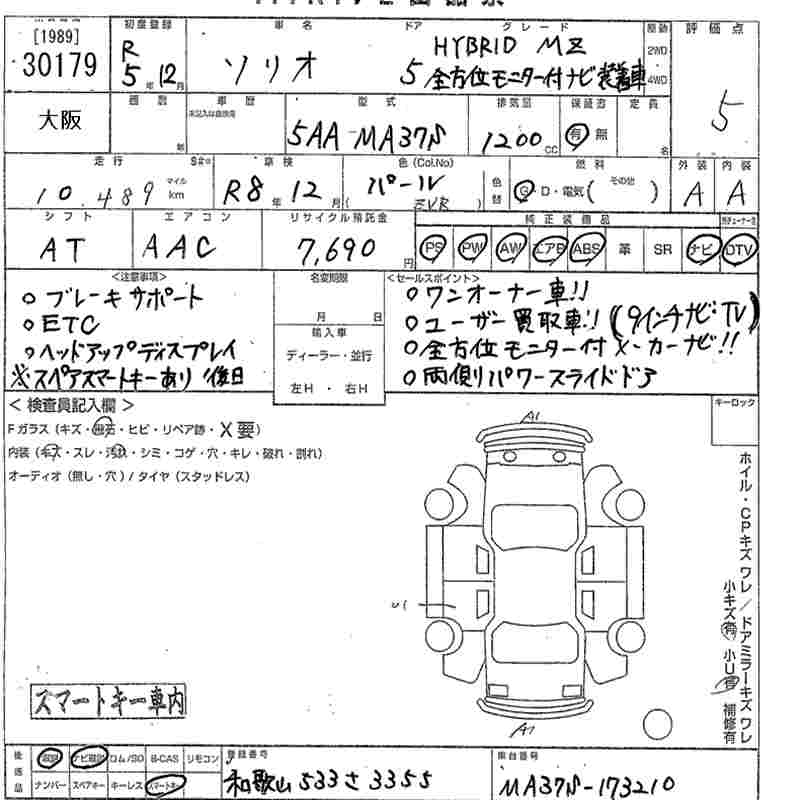 [1989]
30179
初度登録
R
5年 12月
車名
ソリオ
ドア
5
グレード
HYBRID MZ
全方位モニター付ナビ装着車
駆動
2WD
4WD
評価点
5
大阪
車歴
型式
5AA-MA37S
排気量
1200 CC
保証書
有 無
定員
名
走行
10,489
マイル
km
車検
R8年 12月
色(Col.No)
パール
( )
色替
燃料
G・D・電気( その他 )
外装
A
内装
A
シフト
AT
エアコン
AAC
リサイクル預託金
7,690円
純正装備品
PS PW AW エアB ABS 革 SR ナビ DTV
<注意事項>
○ ブレーキサポート
○ ETC
○ ヘッドアップディスプレイ
※スペアスマートキーあり 後日
名変期限
月 日
輸入車
ディーラー・並行
左H ・ 右H
<セールスポイント>
○ ワンオーナー車!!
○ ユーザー買取車!! (9インチナビ・TV)
○ 全方位モニター付メーカーナビ!!
○ 両側パワースライドドア
< 検査員記入欄 >
Fガラス(キズ・飛石・ヒビ・リペア跡・X要)
内装(キズ・スレ・汚れ・シミ・コゲ・穴・キレ・破れ・割れ)
オーディオ(無し・穴)/タイヤ(スタッドレス)
キーロック
A1
U1
A1
ホイル・CPキズワレ/ドアミラーキズワレ
小キズ有 小U有 補修有
スマートキー車内
後送品
取説 ナビ取説 ロム/SD B-CAS リモコン
ナンバー スペアキー キーレス スマートキー
登録番号
和歌山 533 さ 3355
車台番号
MA37S-173210